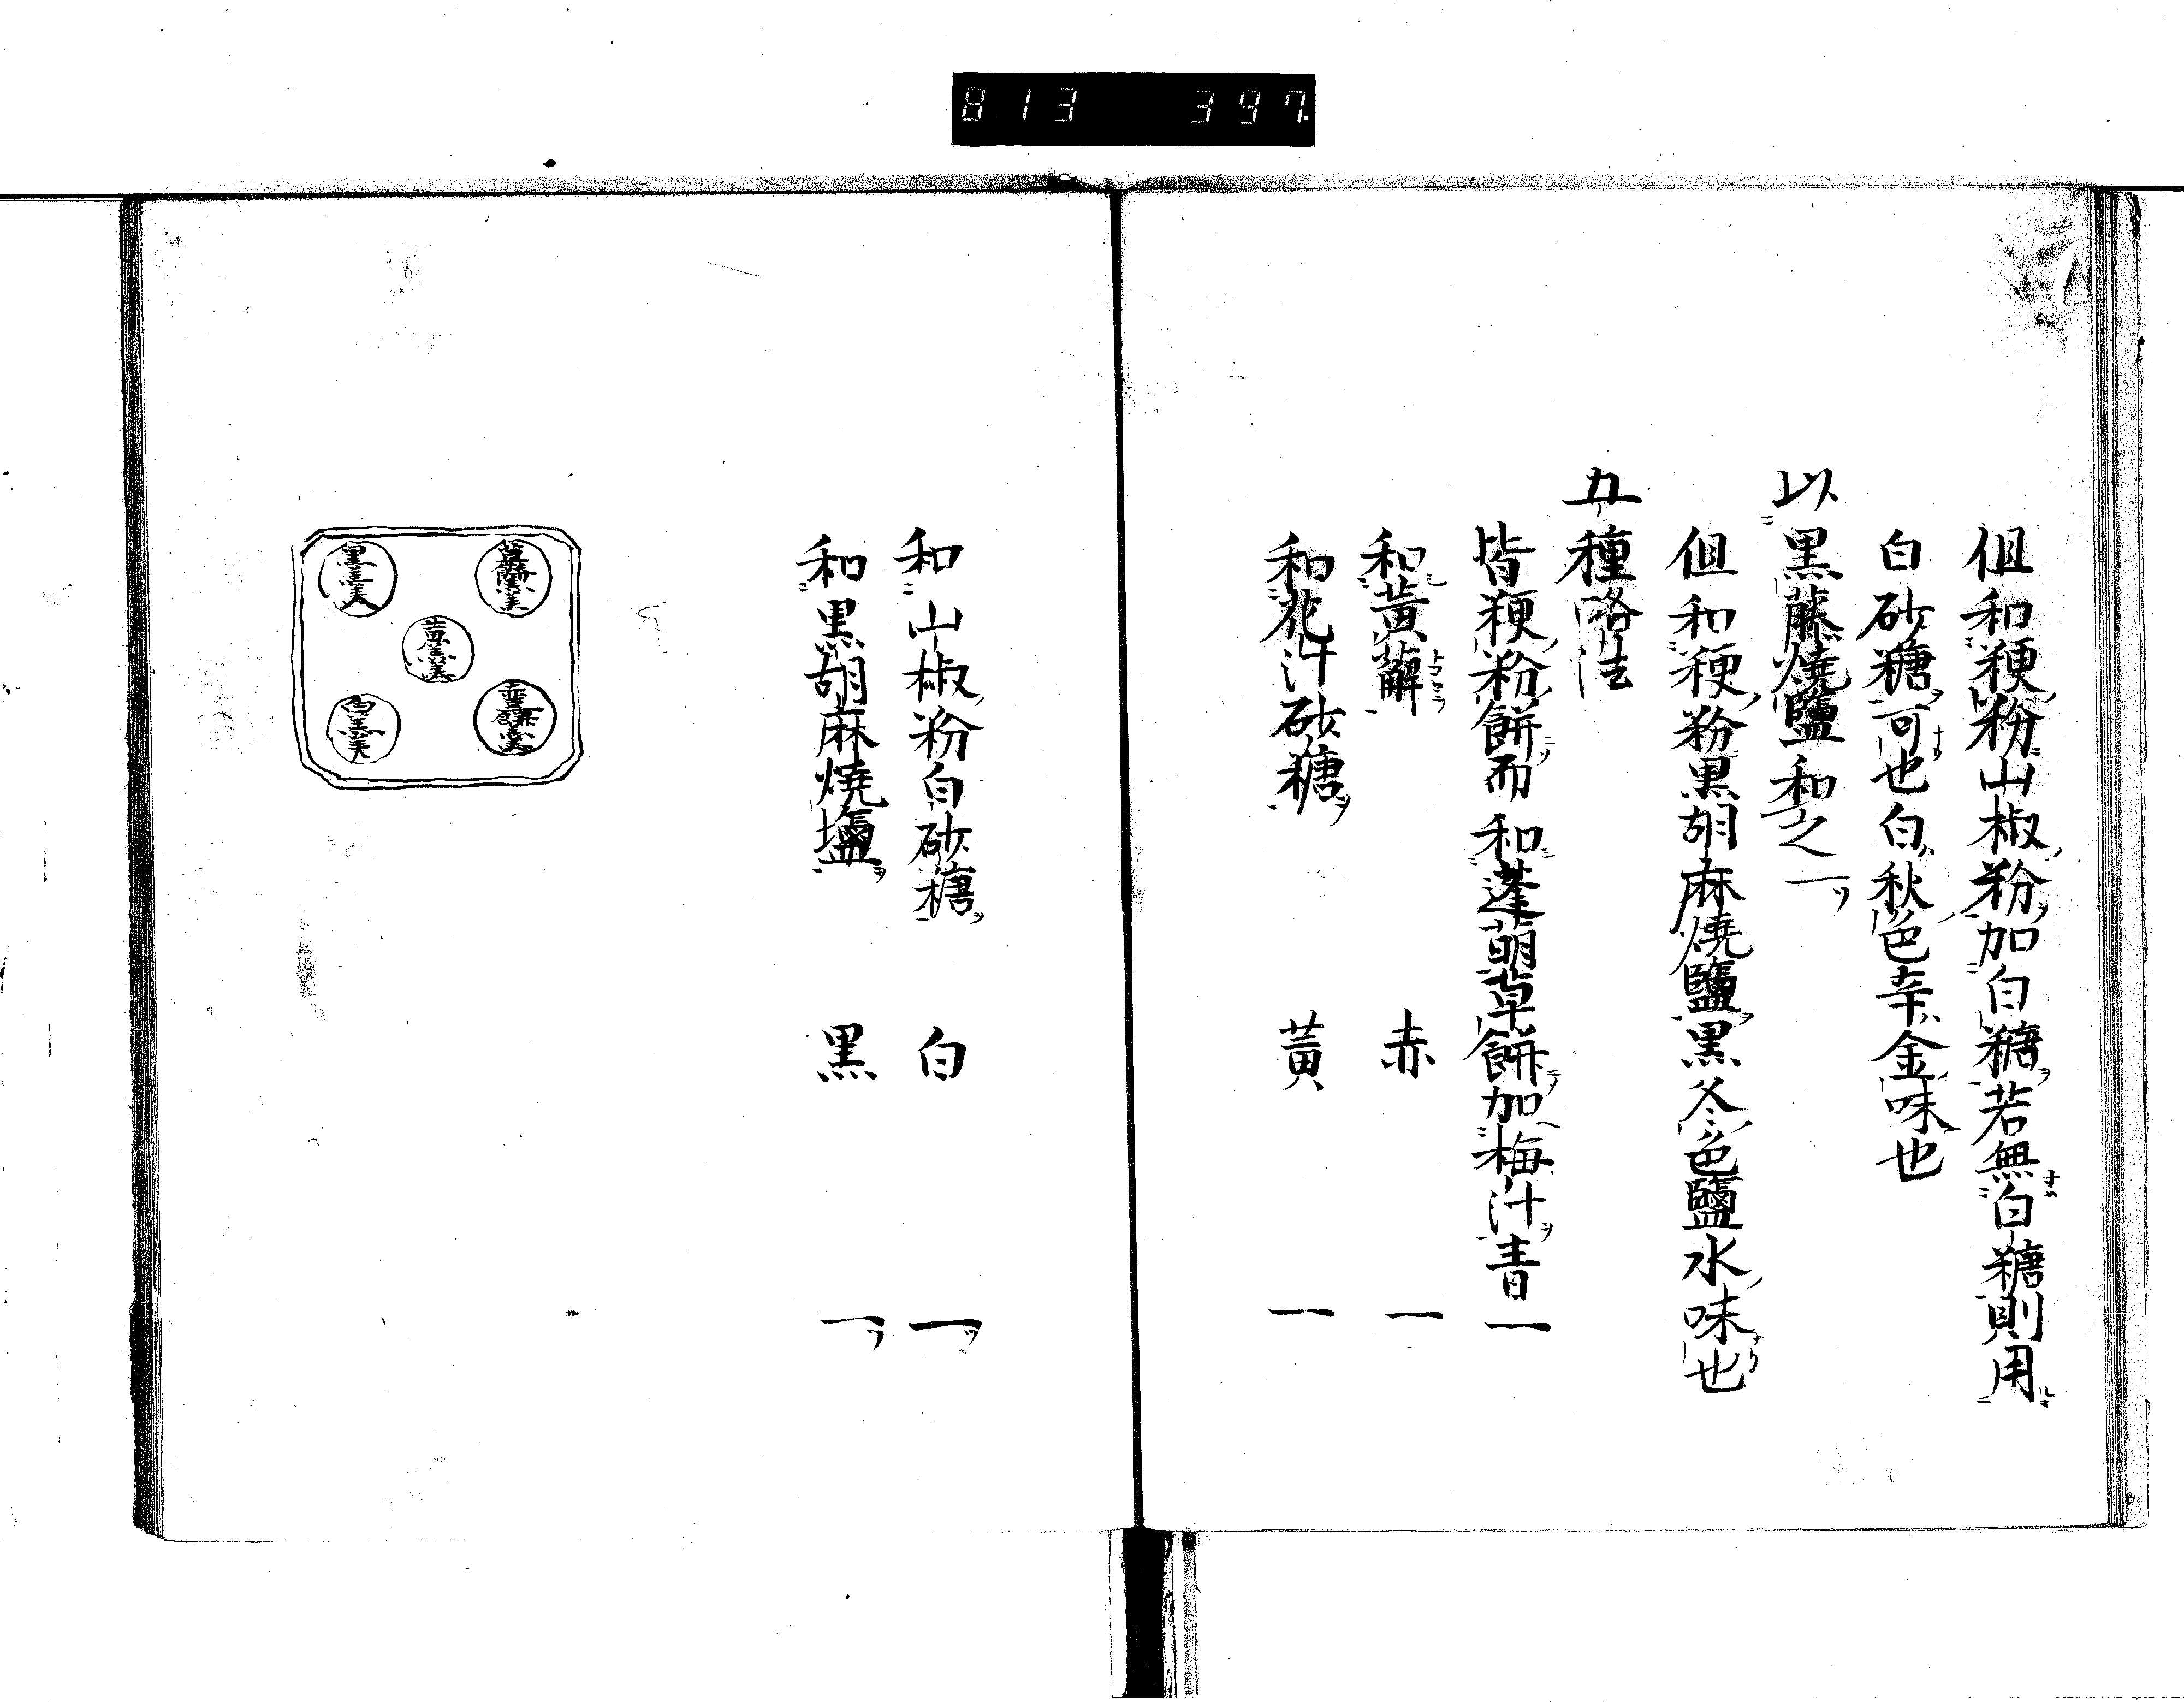 813 397
但和粳粉山椒粉加白糖若無白糖則用
白砂糖可也白秋色辛金味也
以黒藤焼鹽和之一
但和粳粉黒胡麻燒鹽黒冬色鹽水味也
五種略法
皆粳粉餅而和蓬萌草餅加梅汁青 一
和黄蘚 赤 一
和花汁砂糖 黄 一
和山椒粉白砂糖 白 一
和黒胡麻燒塩 黒 一